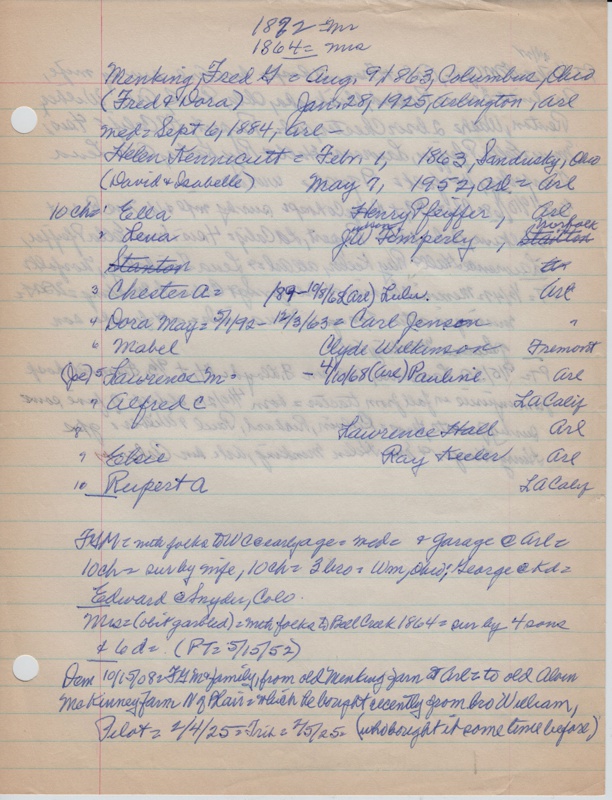 1872 = Mr
1864 = Mrs
Menking, Fred G = Aug, 9, 1863, Columbus, Ohio
(Fred & Dora) Jan 28, 1925, Arlington, Arl
med = Sept 6, 1884, Arl -
Helen Kennicutt = Febr 1, 1863, Sandusky, Ohio
(David & Isabelle) May 7, 1952, Arl = Arl
10 ch = Ella Henry Pfeiffer, Arl
" Lena JW Timperly, Stanton Norfolk
Stanton
3 Chester A = 189 - 10/8/61 (Arl) Lulu. Arl
4 Dora May = 5/1/92 - 12/3/63 = Carl Jenson "
6 Mabel Clyde Wilkinson Fremont
(Joe) 5 Lawrence M = - 4/10/68 (Arl) Pauline Arl
7 Alfred C LA Calif
8 Lawrence Hall Arl
9 Elsie Ray Keeler Arl
10 Rupert A LA Calif
FGM = with folks to WC @ early age = med = & garage @ Arl =
10 ch = sur by wife, 10 ch = 3 bro = Wm, Ohio; George @ Kd =
Edward @ Snyder, Colo.
Mrs = (obit garbled) = with folks to Bell Creek 1864 = sur by 4 sons
& 6 d = . (PT = 5/15/52)
Dem 10/15/08 = FGM & family, from old Menking farm @ Arl = to old Alvin
McKinney farm N of Blair = which he bought recently from bro William,
Pilot = 2/4/25 = Trib = 2/5/25 = (who bought it some time before)